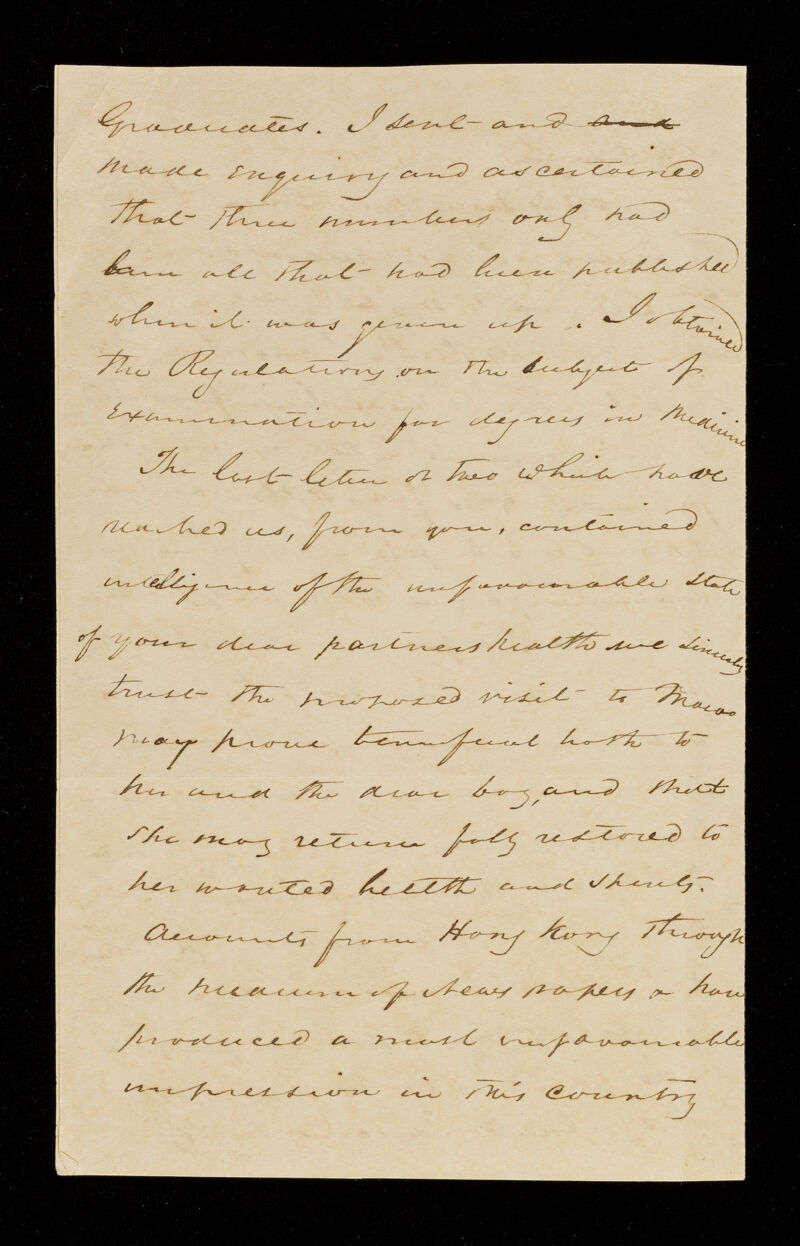 Graduates. I sent and and
made enquiry and ascertained
that three numbers only had
been all that had been published
when it was given up. I obtained
the Regulations on the subject of
Examination for degrees in Medicine
The last letter or two which have
reached us, from you, contained
intelligence of the unfavourable state
of your dear partners health we sincerely
trust the proposed visit to Macao
may prove beneficial both to
her and the dear boy, and that
she may return fully restored to
her wonted health and spirits.
Accounts from Hong Kong through
the medium of News papers & have
produced a most unfavourable
impression in this country